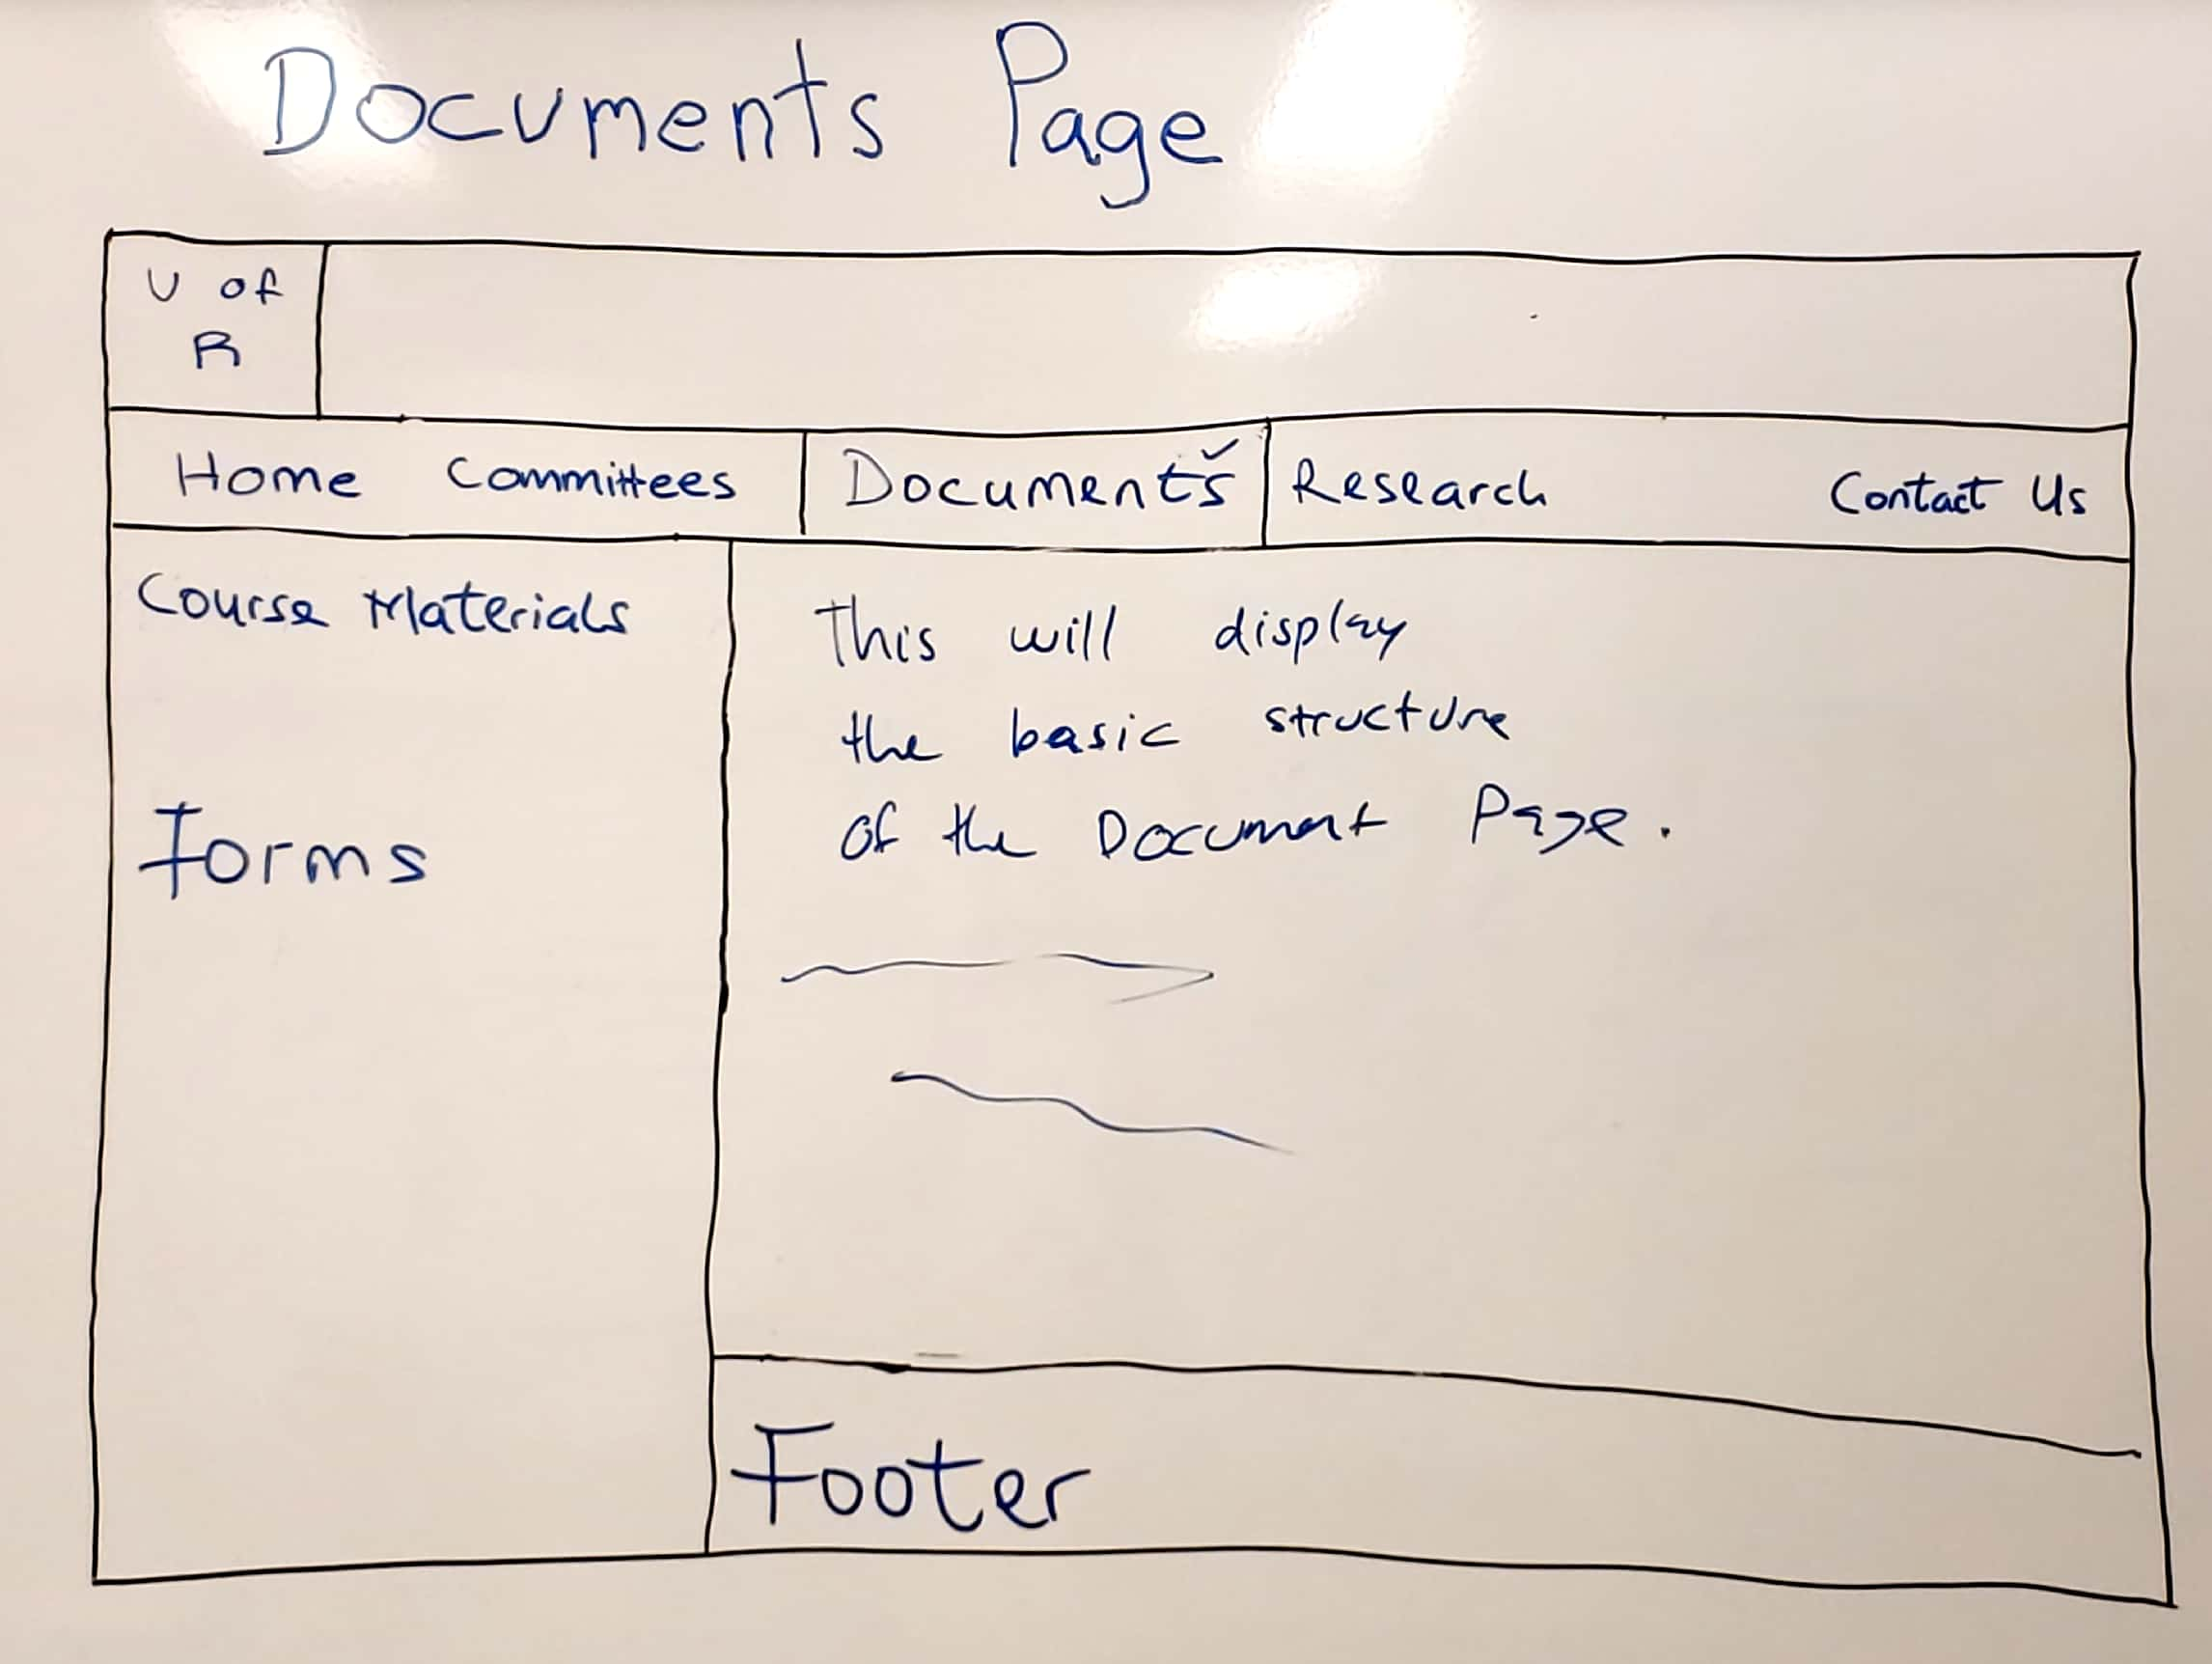 Documents Page
U of
R
Home Committees Documents Research Contact Us
Course Materials
Forms
This will display
the basic structure
of the Document Page.
Footer